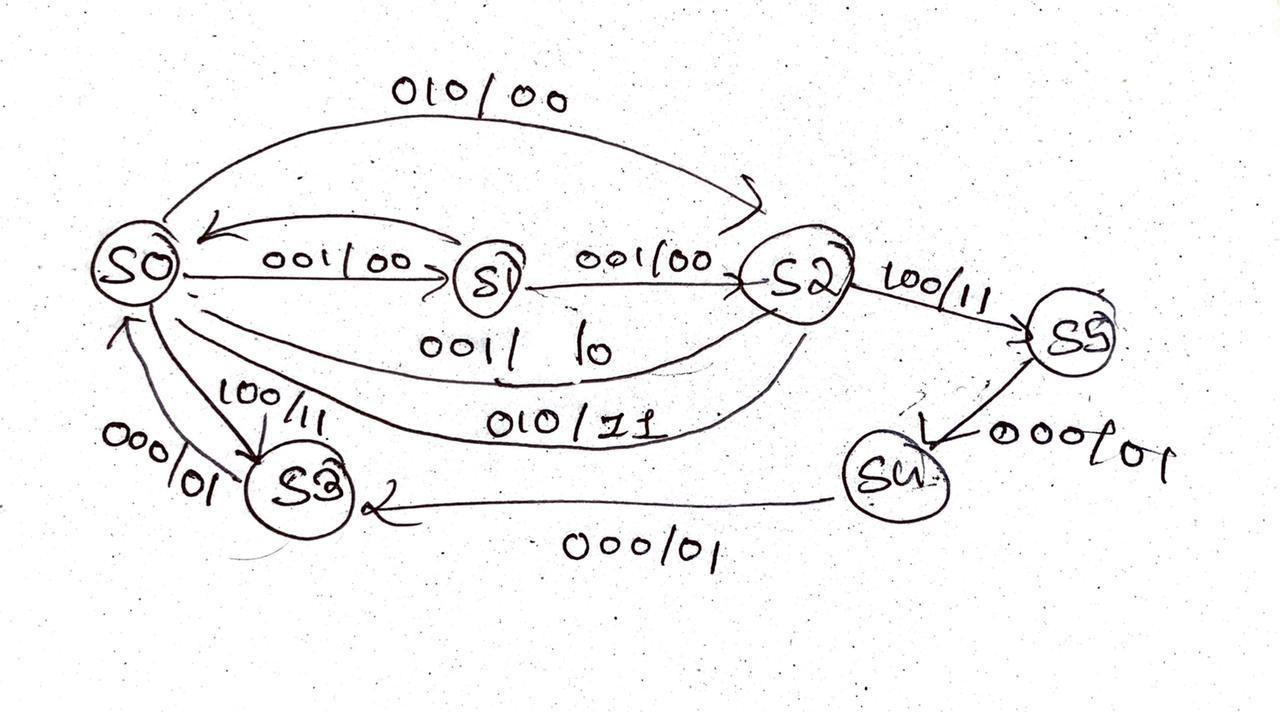 010/00
S0
001/00
S1
001/00
S2
100/11
S5
001/ 10
010/11
100/11
000/01
S3
S4
000/01
000/01